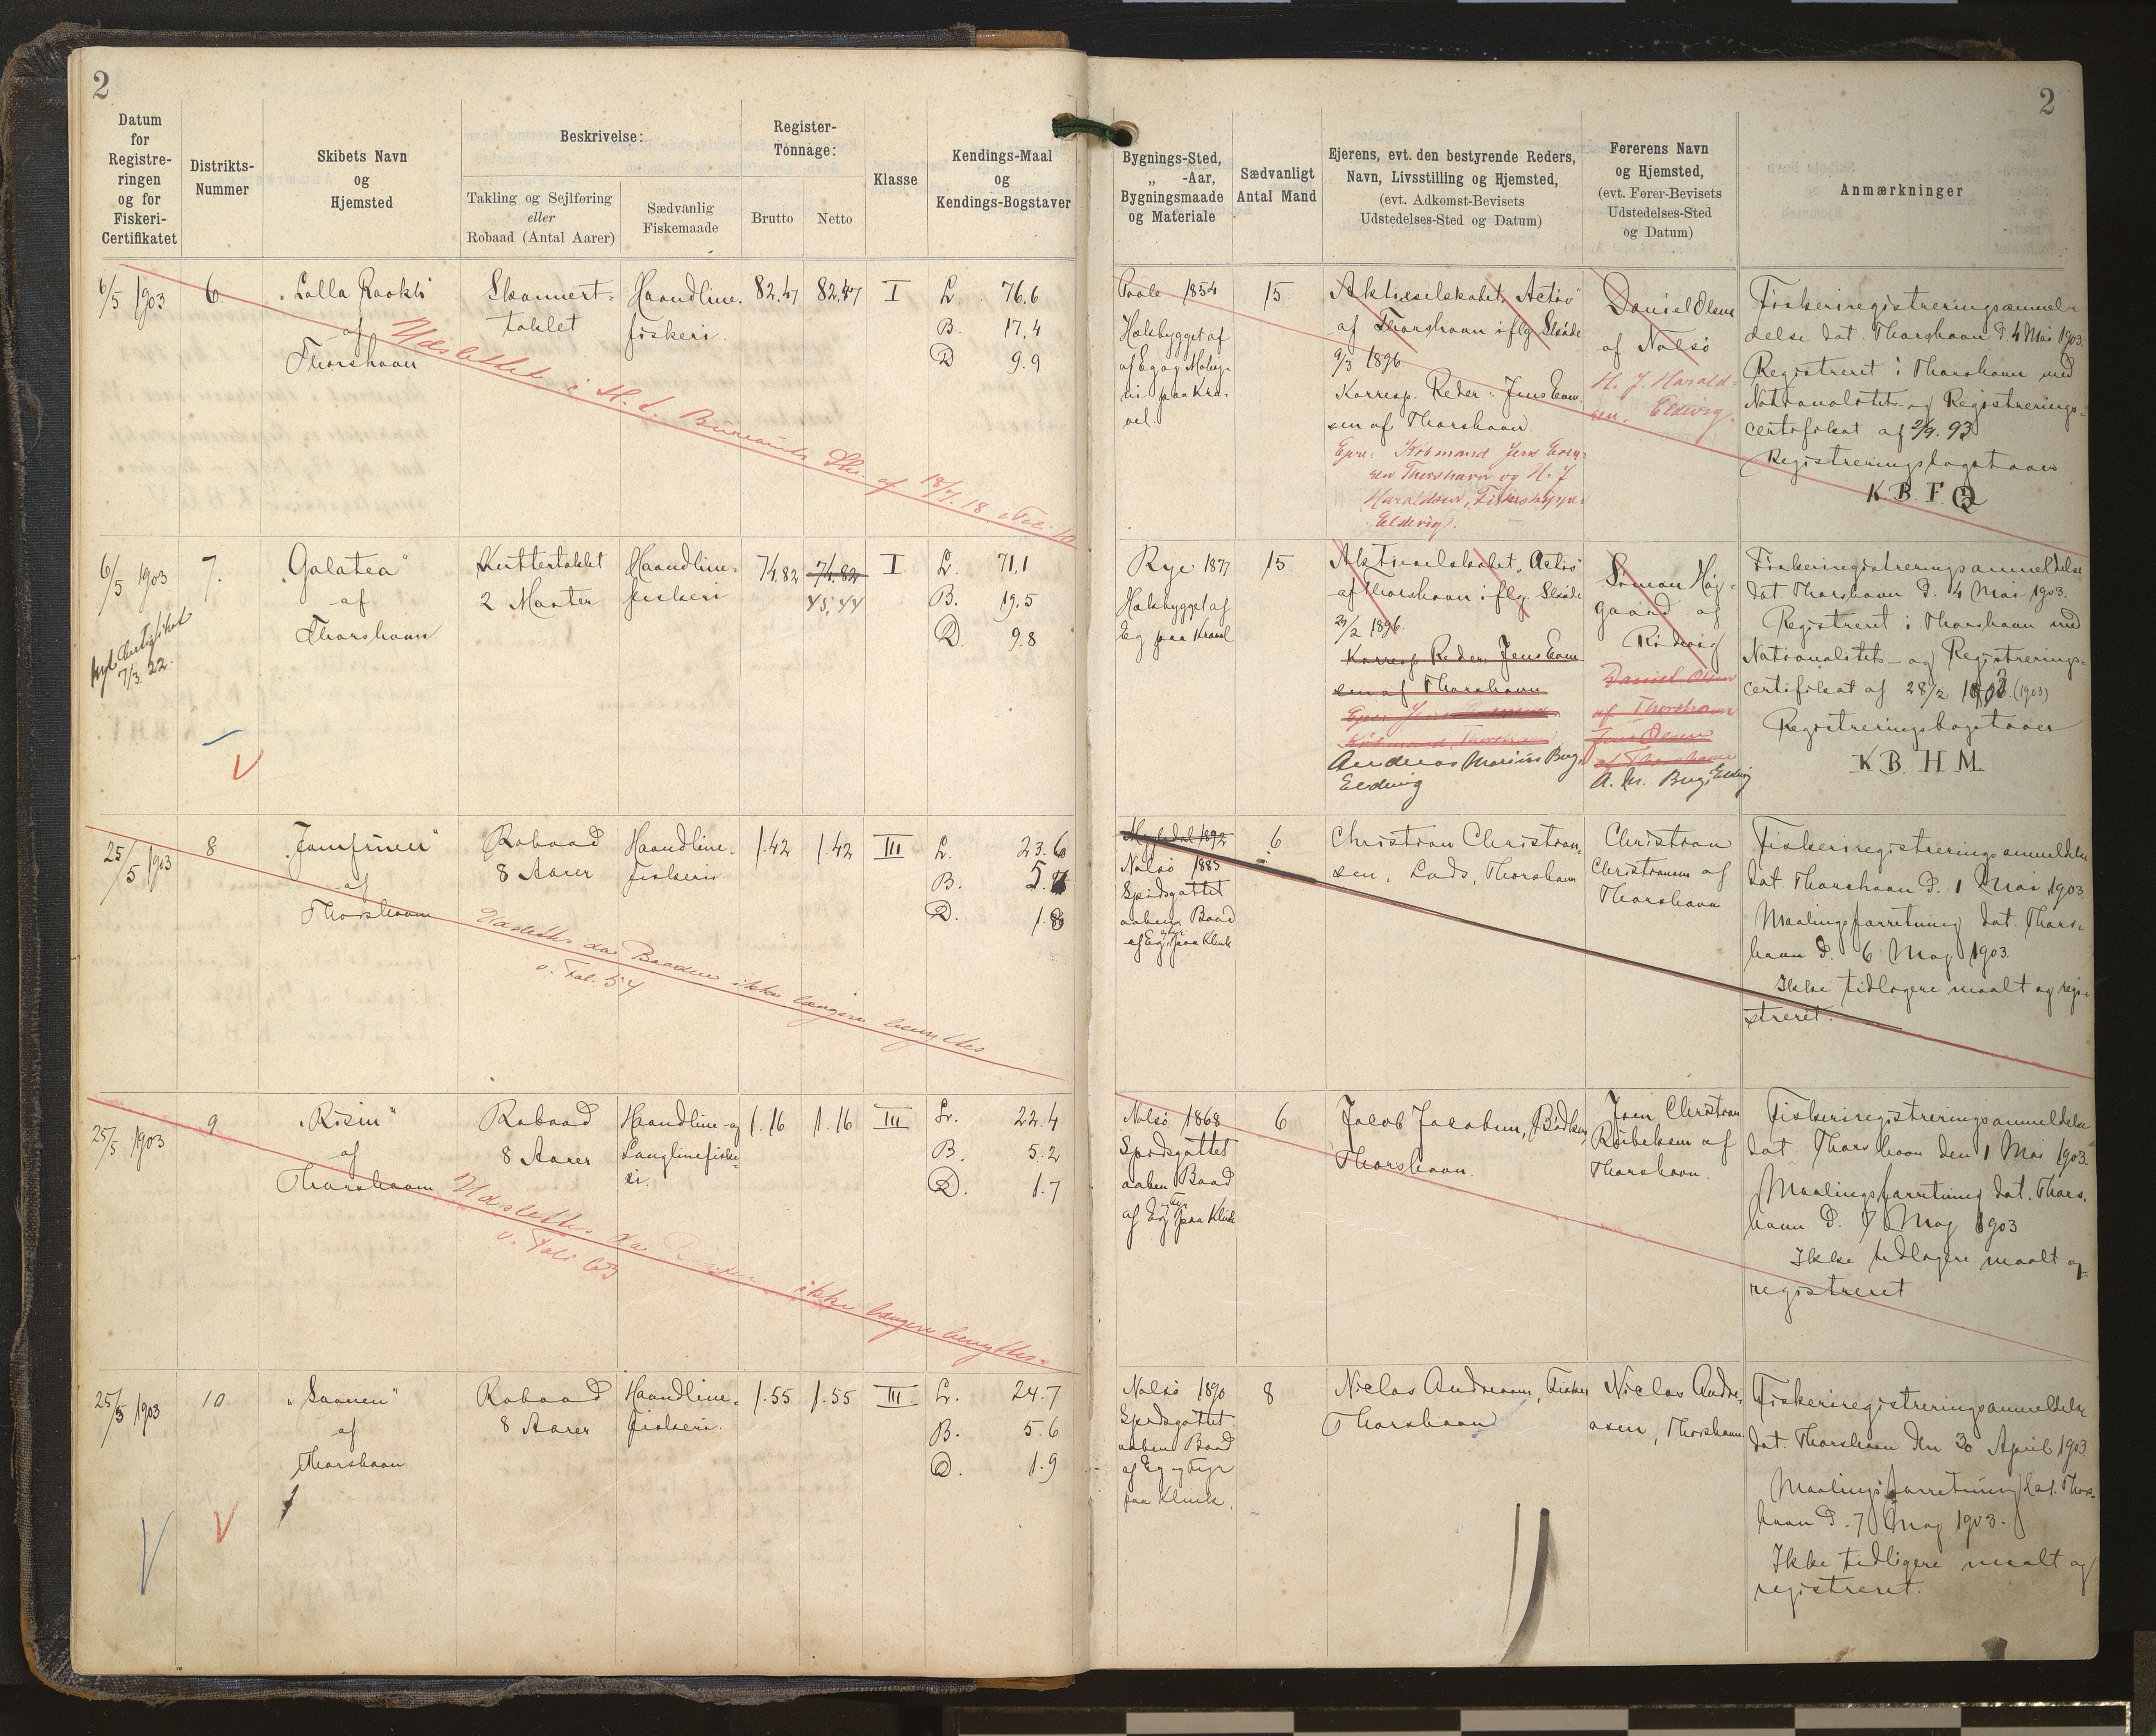 2
2
Datum
for
Registre-
ringen
og for
Fiskeri-
Certifikatet
Distrikts-
Nummer
Skibets Navn
og
Hjemsted
Beskrivelse:
Takling og Sejlføring
eller
Robaad (Antal Aarer)
Sædvanlig
Fiskemaade
Register-
Tonnage:
Brutto
Netto
Klasse
Kendings-Maal
og
Kendings-Bogstaver
Bygnings-Sted,
„ -Aar,
Bygningsmaade
og Materiale
Sædvanligt
Antal Mand
Ejerens, evt. den bestyrende Reders,
Navn, Livsstilling og Hjemsted,
(evt. Adkomst-Bevisets
Udstedelses-Sted og Datum)
Førerens Navn
og Hjemsted,
(evt. Fører-Bevisets
Udstedelses-Sted
og Datum)
Anmærkninger
6/5 1903
6
„Lalla Rookh"
af
Thorshavn
Skonnert-
taklet
Haandline-
fiskeri.
82.47
82.47
I
L. 76.6
B. 17.4
D 9.9
Poole 1854
15
Aktieselskabet „Activ"
af Thorshavn iflg. Skøde
9/3 1896
Korresp. Reder: Jens Even-
sen af Thorshavn.
Ejere: Købmand Jens Even-
sen Thorshavn og H. J
Haraldsen, Fiskeskipper
Eldevig.
Daniel Olsen
af Nolsö
H. J. Harald-
sen, Eldevig.
Fiskeriregistreringsanmel-
delse dat. Thorshavn d. 4 Mai 1903.
Registreret i Thorshavn med
Nationalitets- og Registrerings-
certifikat af 2/9. 93
Registreringsbogstaver
K. B. F. Q
Udslettet i H. d. Bureauets Skr. af 18/7. 18
6/5 1903
7.
„Galatea"
af
Thorshavn
Kuttertaklet
2 Master
Haandline-
fiskeri
74.82
74.82
45,44
I
L. 71.1
B. 19.5
D 9.8
Rye 1877
Helsbygget af
Eg paa Kravel
15
Aktieselskabet „Activ"
af Thorshavn iflg. Skøde
29/2 1896.
Korresp. Reder Jens Even
sen af Thorshavn
Andreas Marius Berg,
Eldevig
Simon Høj-
gaard af
Rituvig
Daniel Olsen
af Thorshavn
Jens Olsen
af Thorshavn
A. M. Berg, Eldevig
Fiskeriregistreringsanmeldelse
dat Thorshavn d. 4 Mai 1903.
Registreret i Thorshavn med
Nationalitets- og Registrerings-
certifikat af 28/2 (1903)
Registreringsbogstaver
K B H M
nyt Certifikat
7/3. 22.
25/5 1903
8
„Jomfruen"
af
Thorshavn
Robaad
8 Aarer
Haandline-
fiskeri
1.42
1.42
III
L. 23.6
B.
D. 1.8
Nolsö 1885
Spidsgattet
aaben Baad
af Eg og Fyr paa Klink
6
Christian Christian-
sen, Lods, Thorshavn
Christian
Christiansen af
Thorshavn
Fiskeriregistreringsanmeldelse
dat. Thorshavn d. 1 Mai 1903.
Maalingsforretning dat. Thors-
havn d. 6 Maj 1903.
Ikke tidligere maalt og regi-
streret.
Udslettes da Baaden ikke længere benyttes
v. Fol. 54
25/5 1903
9
„Risin"
af
Thorshavn
Robaad
8 Aarer
Haandline- og
Langlinefiske-
ri.
1.16
1.16
III
L. 22.4
B. 5.2
D. 1.7
Nolsö 1868
Spidsgattet
aaben Baad
af Eg og Fyr paa Klink
6
Jacob Jacobsen, Bødker,
Thorshavn.
Joen Christian
af
Thorshavn.
Fiskeriregistreringsanmeldelse
dat. Thorshavn den 1 Mai 1903.
Maalingsforretning dat. Thors-
havn d. 7 Maj 1903
Ikke tidligere maalt og
registreret
Udslettes da Baaden ikke længere benyttes.
25/5 1903
10
„Saanen"
af
Thorshavn
Robaad
8 Aarer
Haandline-
fiskeri.
1.55
1.55
III
L. 24.7
B. 5.6
D. 1.9
Nolsö 1890
Spidsgattet
aaben Baad
af Eg og Fyr
paa Klink.
8
Niclas Andreasen, Fisker
Thorshavn
Niclas Andre-
asen, Thorshavn
Fiskeriregistreringsanmeldelse
dat. Thorshavn den 30 April 1903
Maalingsforretning dat. Thors-
havn d. 7 Maj 1903.
Ikke tidligere maalt og
registreret.